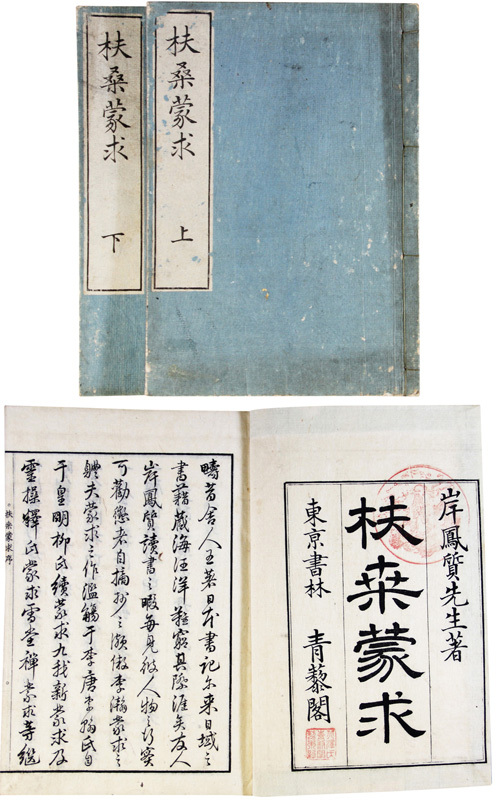 扶桑蒙求 上
扶桑蒙求 下
岸鳳質先生著
扶桒蒙求
東京書林 青藜閣
疇昔舍人王著日本書記尒来日域之
書籍蔵海汪洋難窮其際涯矣友人
岸鳳質讀書之暇每見彼人物之行實
可勸懲者自摘抄之瀕倣李瀚蒙求之
體夫蒙求之作濫觴于李唐李瀚氏自
于皇明柳氏續蒙求九我新蒙求及
靈操釋氏蒙求雪堂禅蒙求等繼
扶桒蒙求序